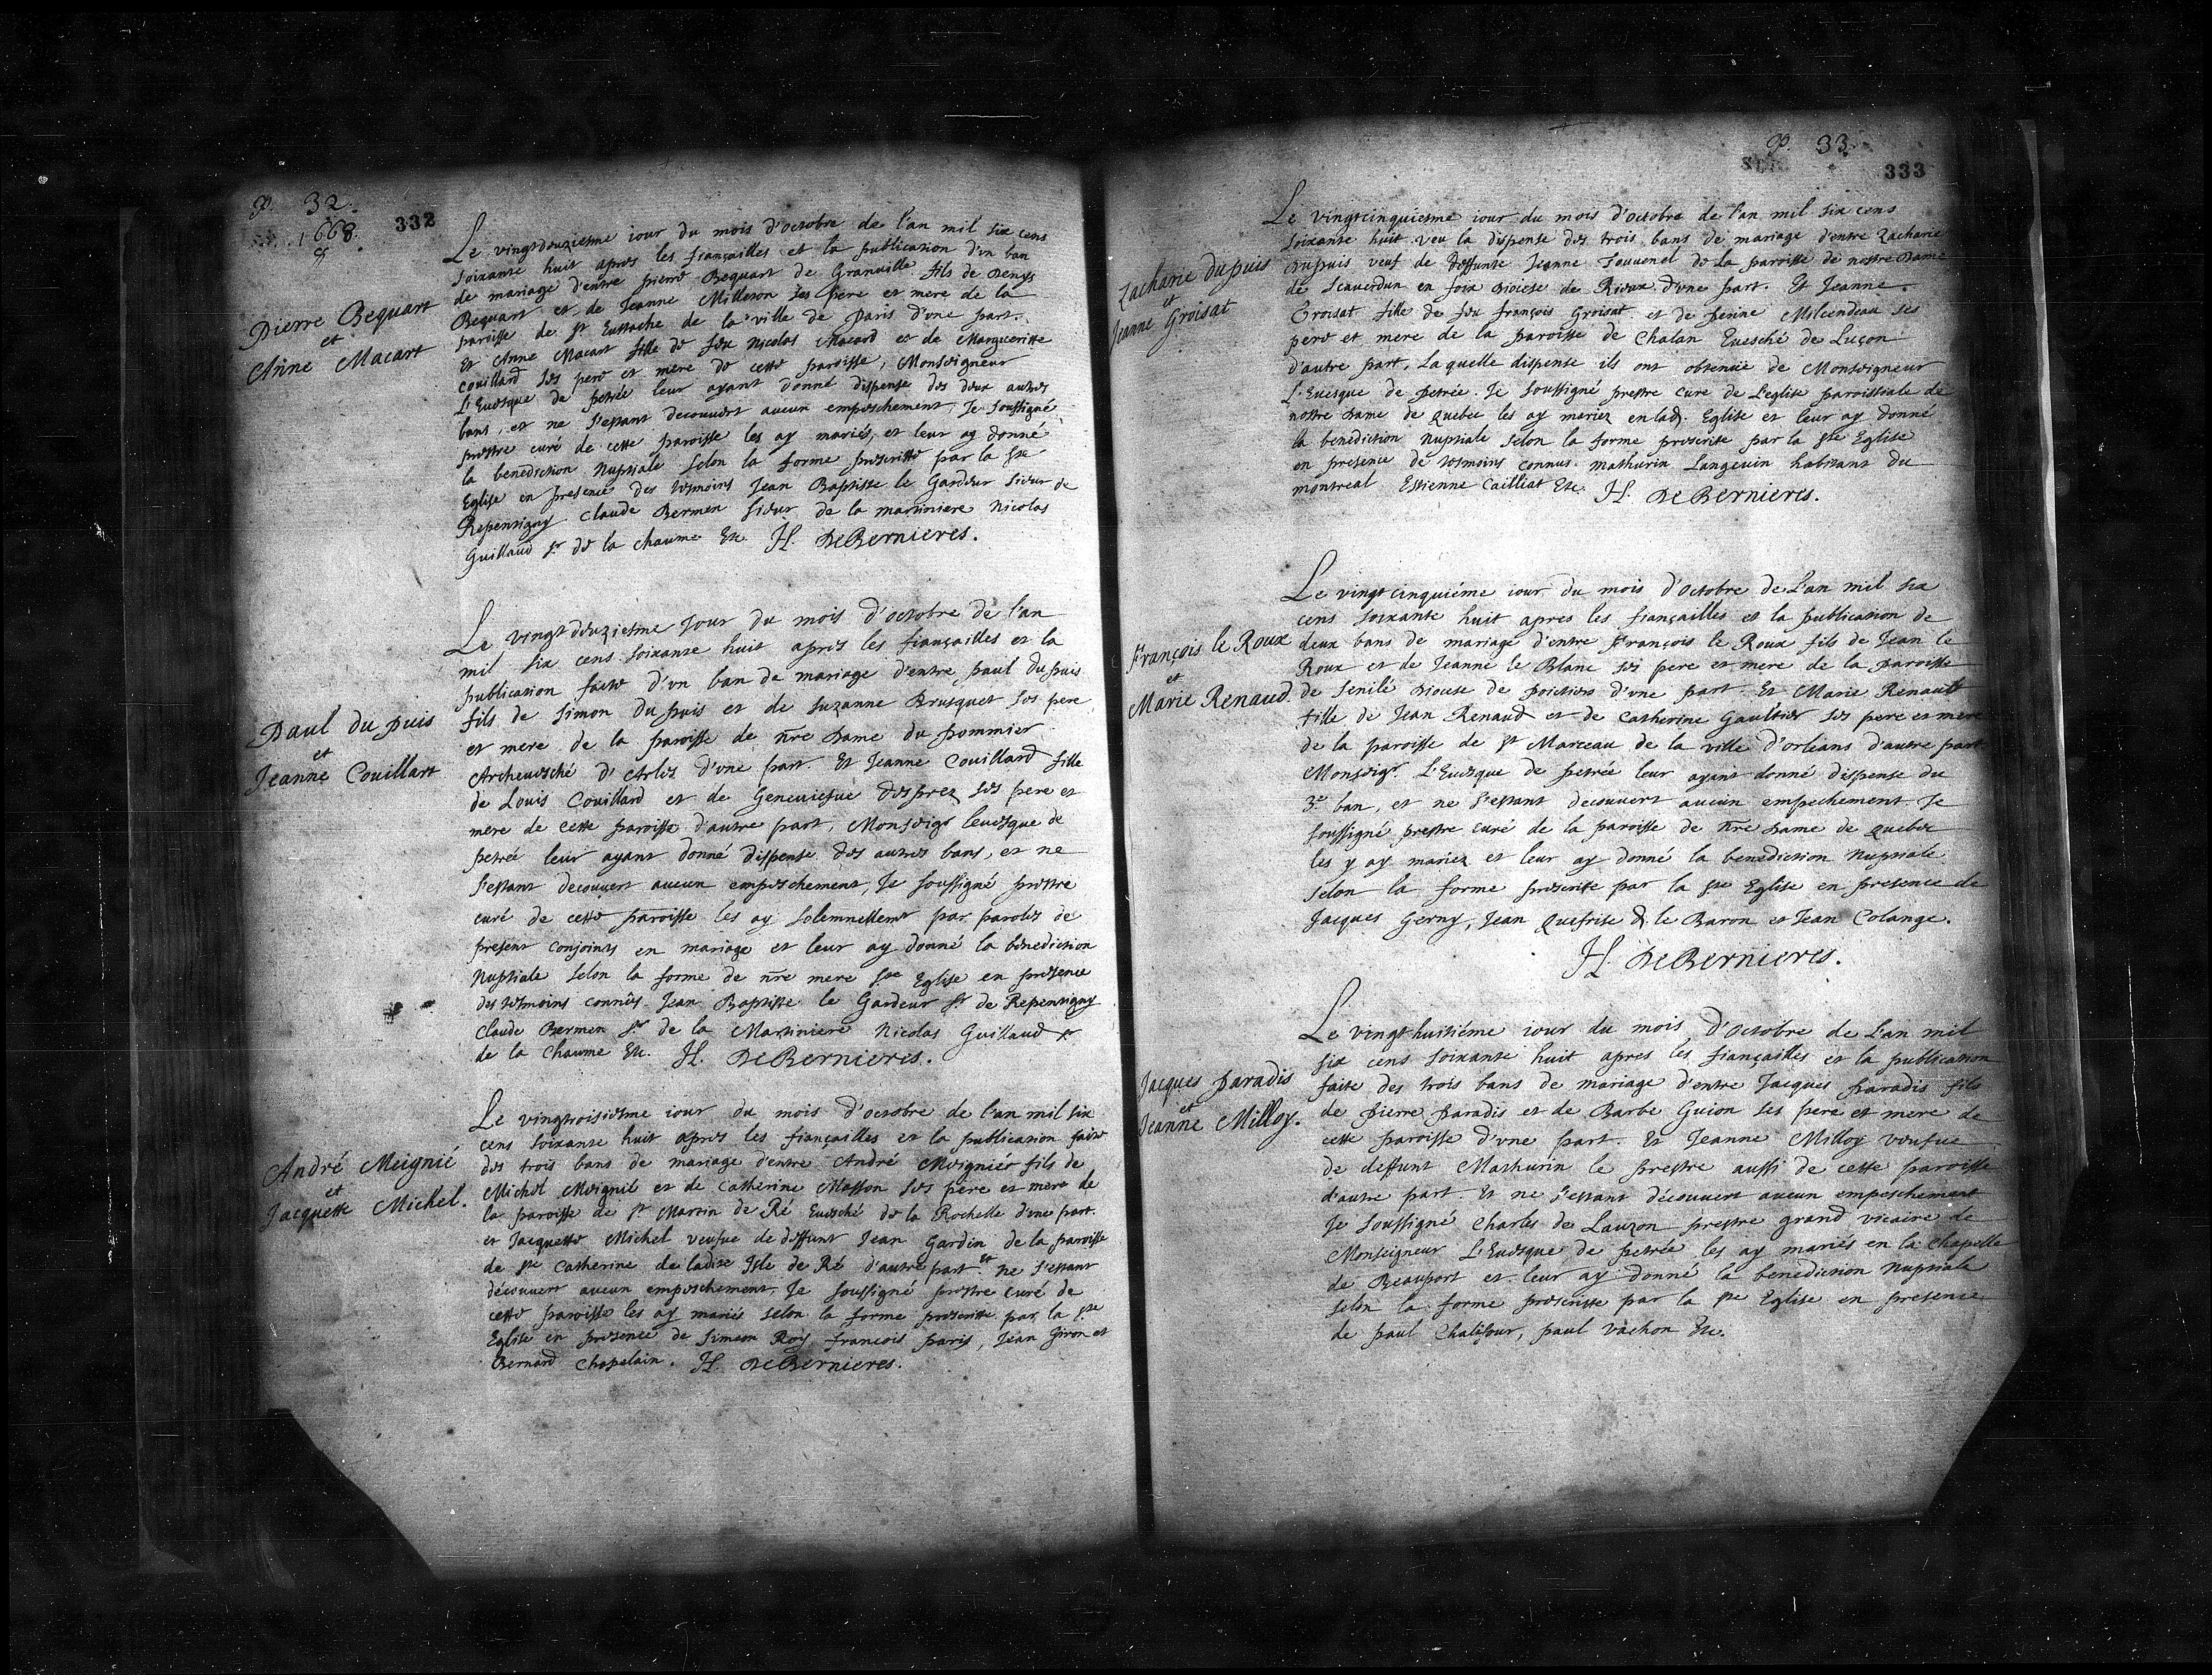 P. 32.
332
1668.
8
Pierre Bequart
et
Anne Macart
Le vingtdeuziesme iour du mois d'octobre de l'an mil six cens
soixante huit apres les fiançailles et la publication d'vn ban
de mariage d'entre pierre Bequart de Granuille fils de Denys
Bequart et de Jeanne Milleron ses pere et mere de la
paroisse de st Eustache de la ville de Paris d'vne part.
Et Anne Macart fille de feu Nicolas Macard et de Margueritte
couillard ses pere et mere de cette paroisse, Monseigneur
L'Euesque de petrée leur ayant donné dispense des deux autres
bans, et ne s'estant decouuert aucun empeschement, Je soussigné
prestre curé de cette paroisse les ay mariés, et leur ay donné
la benediction Nuptiale selon la forme prescritte par la ste
Eglise en presence des tesmoins Jean Baptiste le Gardeur sieur de
Repentigny Claude Bermen sieur de la martiniere Nicolas
Guillaud sr de la chaume Etc. H. DeBernieres.
Paul du puis
et
Jeanne Couillart
Le vingt deuziesme Jour du mois d'octobre de l'an
mil six cens soixante huit apres les fiançailles et la
publication faite d'vn ban de mariage d'entre paul du puis
fils de simon du puis et de suzanne Brusquet ses pere
et mere de la paroisse de nre Dame du pommier
Archeuesché d'Arles d'vne part. Et Jeanne Couillard fille
de Louis Couillard et de Geneuiefue desprez ses pere et
mere de cette paroisse d'autre part, Monseigr leuesque de
petrée leur ayant donné dispense des autres bans, et ne
s'estant decouuert aucun empeschement, Je soussigné prestre
curé de cette paroisse les ay solemnellemt par paroles de
present conjoints en mariage et leur ay donné la benediction
Nuptiale selon la forme de nre mere ste Eglise en presence
des tesmoins connûs Jean Baptiste le Gardeur sr de Repentigny
Claude Bermen sr de la Martiniere Nicolas Guillaud sr
de la Chaume Etc. H. DeBernieres.
André Meignié
et
Jacquette Michel.
Le vingtroisiesme iour du mois d'octobre de l'an mil six
cens soixante huit apres les fiançailles et la publication faite
des trois bans de mariage d'entre André Meignier fils de
Michel Meignié et de Catherine Masson ses pere et mere de
la paroisse de st Martin de Ré Euesché de la Rochelle d'vne part.
et Jacquette Michel veufue de deffunt Jean Gardin de la paroisse
de ste Catherine de ladite Isle de Ré d'autre part et ne s'estant
découuert aucun empeschement, Je soussigné prestre curé de
cette paroisse les ay mariés selon la forme prescritte par la ste
Eglise en presence de Simeon Roy, francois paris, Jean Giron et
Bernard Chapelain. H. DeBernieres.
P. 33
333
Zacharie du puis
et
Jeanne Groisat
Le vingtcinquiesme iour du mois d'octobre de l'an mil six cens
soixante huit veu la dispense des trois bans de mariage d'entre Zacharie
dupuis veuf de deffunte Jeanne Jouuenel de la paroisse de nostre Dame
de Scauerdun en foix Diocese de Rieux d'vne part. Et Jeanne
Groisat fille de feu françois Groisat et de perine Milcendeau ses
pere et mere de la paroisse de Chalan Euesché de Luçon
d'autre part, Laquelle dispense ils ont obtenüe de Monseigneur
L'Euesque de Petrée. Je soussigné prestre curé de L'eglise paroissiale de
nostre Dame de quebec les ay mariez en lad. Eglise et leur ay donné
la benediction Nuptiale selon la forme prescrite par la ste Eglise
en presence de tesmoins connus mathurin Langeuin habitant du
montreal Estienne Cailliat Etc. H. DeBernieres.
François le Roux
et
Marie Renaud.
Le vingt cinquiéme iour du mois d'octobre de L'an mil six
cens soixante huit apres les fiançailles et la publication de
deux bans de mariage d'entre François le Roux fils de Jean le
Roux et de Jeanne le Blanc ses pere et mere de la paroisse
de Senilé Diocese de poictiers d'vne part. Et Marie Renault
fille de Jean Renaud et de Catherine Gaultier ses pere et mere
de la paroisse de st Marceau de la ville d'orleans d'autre part
Monseigr. L'Euesque de petrée leur ayant donné dispense du
3e ban, et ne s'estant decouuert aucun empechement. Je
soussigné prestre curé de la paroisse de nre Dame de quebec
les y ay mariez et leur ay donné la benediction Nuptiale
selon la forme prescrite par la ste Eglise en presence de
Jacques Gerny, Jean quefrise d. le Baron et Jean Colange.
H. DeBernieres.
Jacques paradis
et
Jeanne Milloy.
Le vingt huitiéme iour du mois d'Octobre de L'an mil
six cens soixante huit apres les fiançailles et la publication
faite des trois bans de mariage d'entre Jacques paradis fils
de pierre paradis et de Barbe Guion ses pere et mere de
cette paroisse d'vne part. Et Jeanne Milloy veufue
de deffunt Mathurin le prestre aussi de cette paroisse
d'autre part. Et ne s'estant découuert aucun empeschement
Je soussigné Charles de Lauzon prestre grand vicaire de
Monseigneur L'Euesque de petrée les ay mariés en la Chapelle
de Beauport et leur ay donné la benediction Nuptiale
selon la forme prescritte par la ste Eglise en presence
de paul Chalifour, paul vachon Etc.